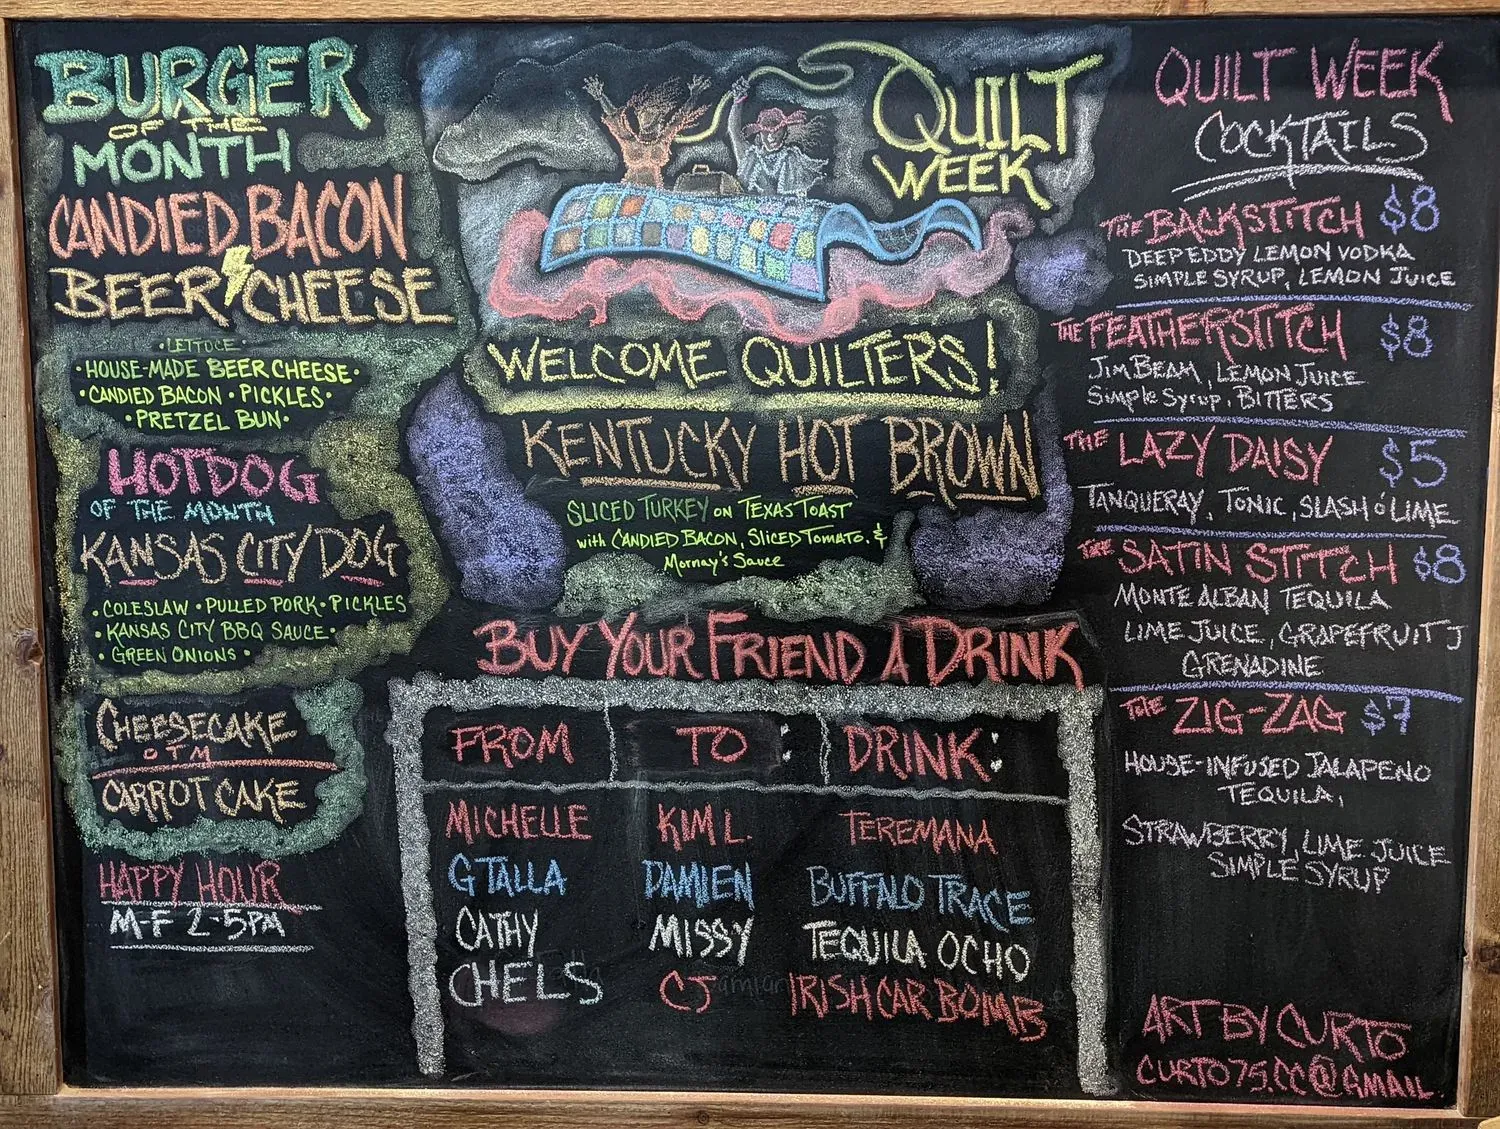 BURGER
OF THE
MONTH
CANDIED BACON
BEER CHEESE
• LETTUCE •
• HOUSE-MADE BEER CHEESE •
• CANDIED BACON • PICKLES •
• PRETZEL BUN •
HOTDOG
OF THE MONTH
KANSAS CITY DOG
• COLESLAW • PULLED PORK • PICKLES
• KANSAS CITY BBQ SAUCE •
• GREEN ONIONS •
CHEESECAKE
OTM
CARROT CAKE
HAPPY HOUR
M-F 2-5PM
QUILT
WEEK
WELCOME QUILTERS!
KENTUCKY HOT BROWN
SLICED TURKEY ON TEXAS TOAST
with CANDIED BACON, SLICED TOMATO. &
Mornay's Sauce
BUY YOUR FRIEND A DRINK
FROM TO : DRINK:
MICHELLE KIM L. TEREMANA
G TALLA DAMIEN BUFFALO TRACE
CATHY MISSY TEQUILA OCHO
CHELS CJ IRISH CAR BOMB
QUILT WEEK
COCKTAILS
THE BACKSTITCH $8
DEEP EDDY LEMON VODKA
SIMPLE SYRUP, LEMON JUICE
THE FEATHERSTITCH $8
JIM BEAM, LEMON JUICE
Simple Syrup, BITTERS
THE LAZY DAISY $5
TANQUERAY, TONIC, SLASH O' LIME
THE SATIN STITCH $8
MONTE ALBAN TEQUILA
LIME JUICE, GRAPEFRUIT J
GRENADINE
THE ZIG-ZAG $7
HOUSE-INFUSED JALAPENO
TEQUILA,
STRAWBERRY, LIME JUICE
SIMPLE SYRUP
ART BY CURTO
CURTO75.CC@GMAIL.